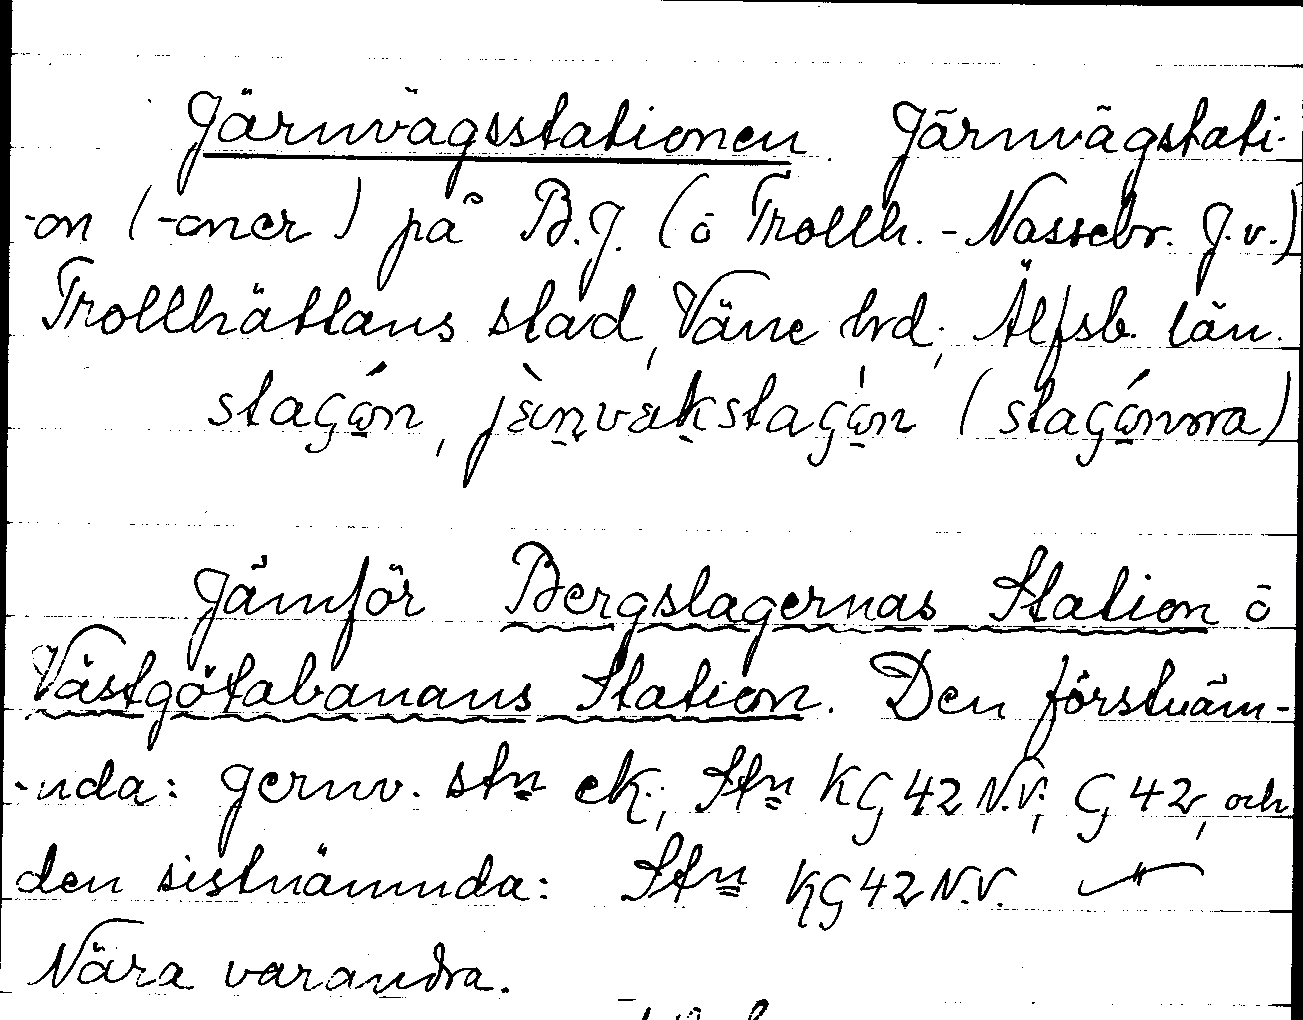 Järnvägsstationen. Järnvägstati-
-on (-oner) på B.J. (ō Trollh. - Nossebr. J.v.)
Trollhättans stad, Väne hrd; Älfsb. län.
staʃón, jæ̀ɳvækstaʃón (staʃónνa)
Jämför Bergslagernas Station ō
Västgötabanans Station. Den förstnäm-
-nda: Jernv. stn ek., Stn KG 42 N.V.; G 42, och
den sistnämnda: Stn KG 42 N.V.
Nära varandra.